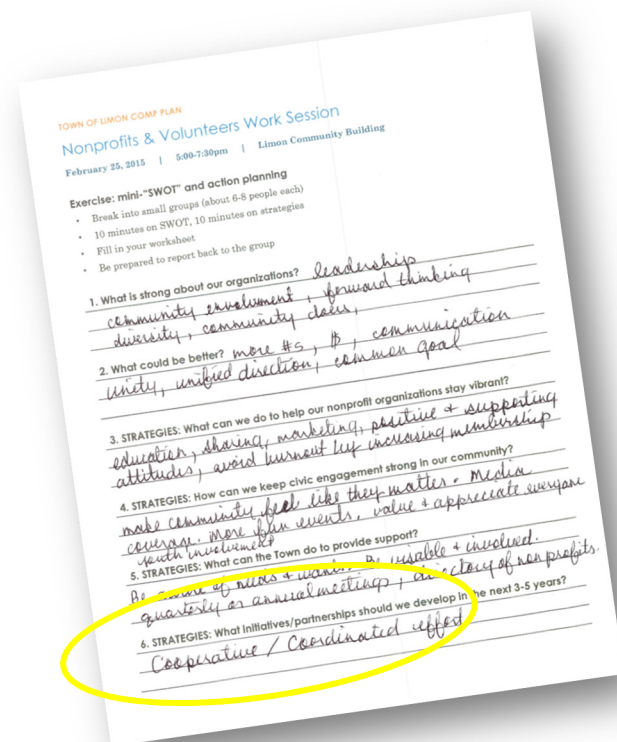 TOWN OF LIMON COMP PLAN
Nonprofits & Volunteers Work Session
February 25, 2015 | 5:00-7:30pm | Limon Community Building
Exercise: mini-"SWOT" and action planning
• Break into small groups (about 6-8 people each)
• 10 minutes on SWOT, 10 minutes on strategies
• Fill in your worksheet
• Be prepared to report back to the group
1. What is strong about our organizations? leadership
community envolvment, forward thinking
diversity, community doers,
2. What could be better? more #s, $, communication
unity, unified direction, common goal
3. STRATEGIES: What can we do to help our nonprofit organizations stay vibrant?
education, sharing, marketing, positive + supporting
attitudes, avoid burnout by increasing membership
4. STRATEGIES: How can we keep civic engagement strong in our community?
make community feel like they matter. Media
coverage. More fun events. value + appreciate everyone
youth involvement
5. STRATEGIES: What can the Town do to provide support?
Be aware of needs + wants. Be visable + involved.
quarterly or annual meetings, directory of non profits.
6. STRATEGIES: What initiatives/partnerships should we develop in the next 3-5 years?
Cooperative / Coordinated effort